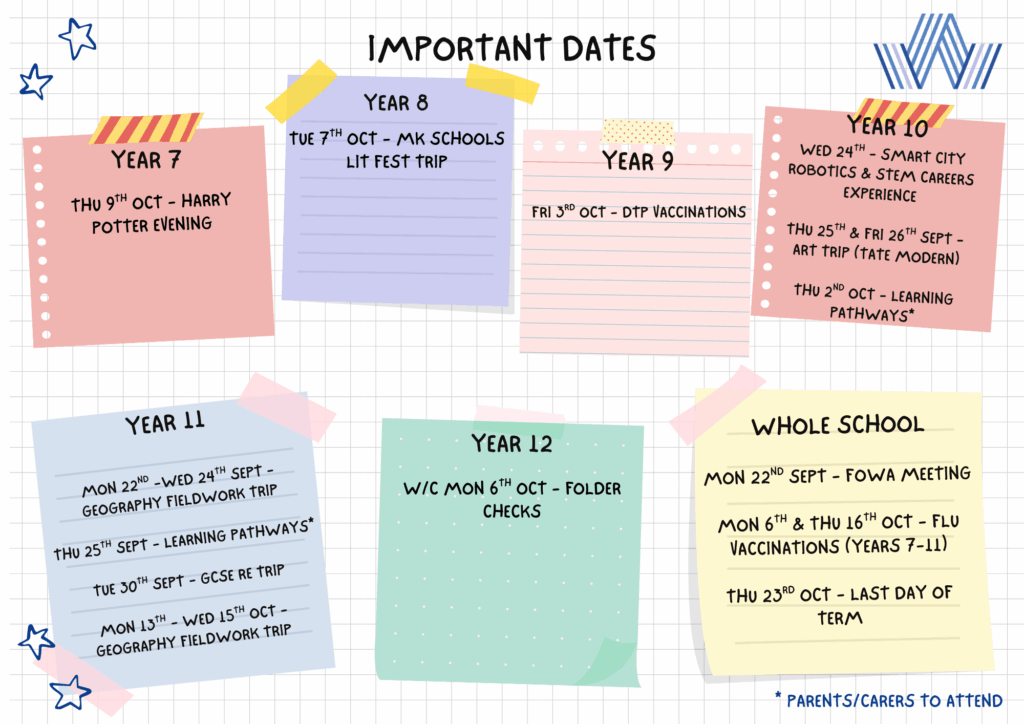 IMPORTANT DATES
YEAR 7
THU 9TH OCT - HARRY
POTTER EVENING
YEAR 8
TUE 7TH OCT - MK SCHOOLS
LIT FEST TRIP
YEAR 9
FRI 3RD OCT - DTP VACCINATIONS
YEAR 10
WED 24TH - SMART CITY
ROBOTICS & STEM CAREERS
EXPERIENCE
THU 25TH & FRI 26TH SEPT -
ART TRIP (TATE MODERN)
THU 2ND OCT - LEARNING
PATHWAYS*
YEAR 11
MON 22ND -WED 24TH SEPT -
GEOGRAPHY FIELDWORK TRIP
THU 25TH SEPT - LEARNING PATHWAYS*
TUE 30TH SEPT - GCSE RE TRIP
MON 13TH - WED 15TH OCT -
GEOGRAPHY FIELDWORK TRIP
YEAR 12
W/C MON 6TH OCT - FOLDER
CHECKS
WHOLE SCHOOL
MON 22ND SEPT - FOWA MEETING
MON 6TH & THU 16TH OCT - FLU
VACCINATIONS (YEARS 7-11)
THU 23RD OCT - LAST DAY OF
TERM
* PARENTS/CARERS TO ATTEND